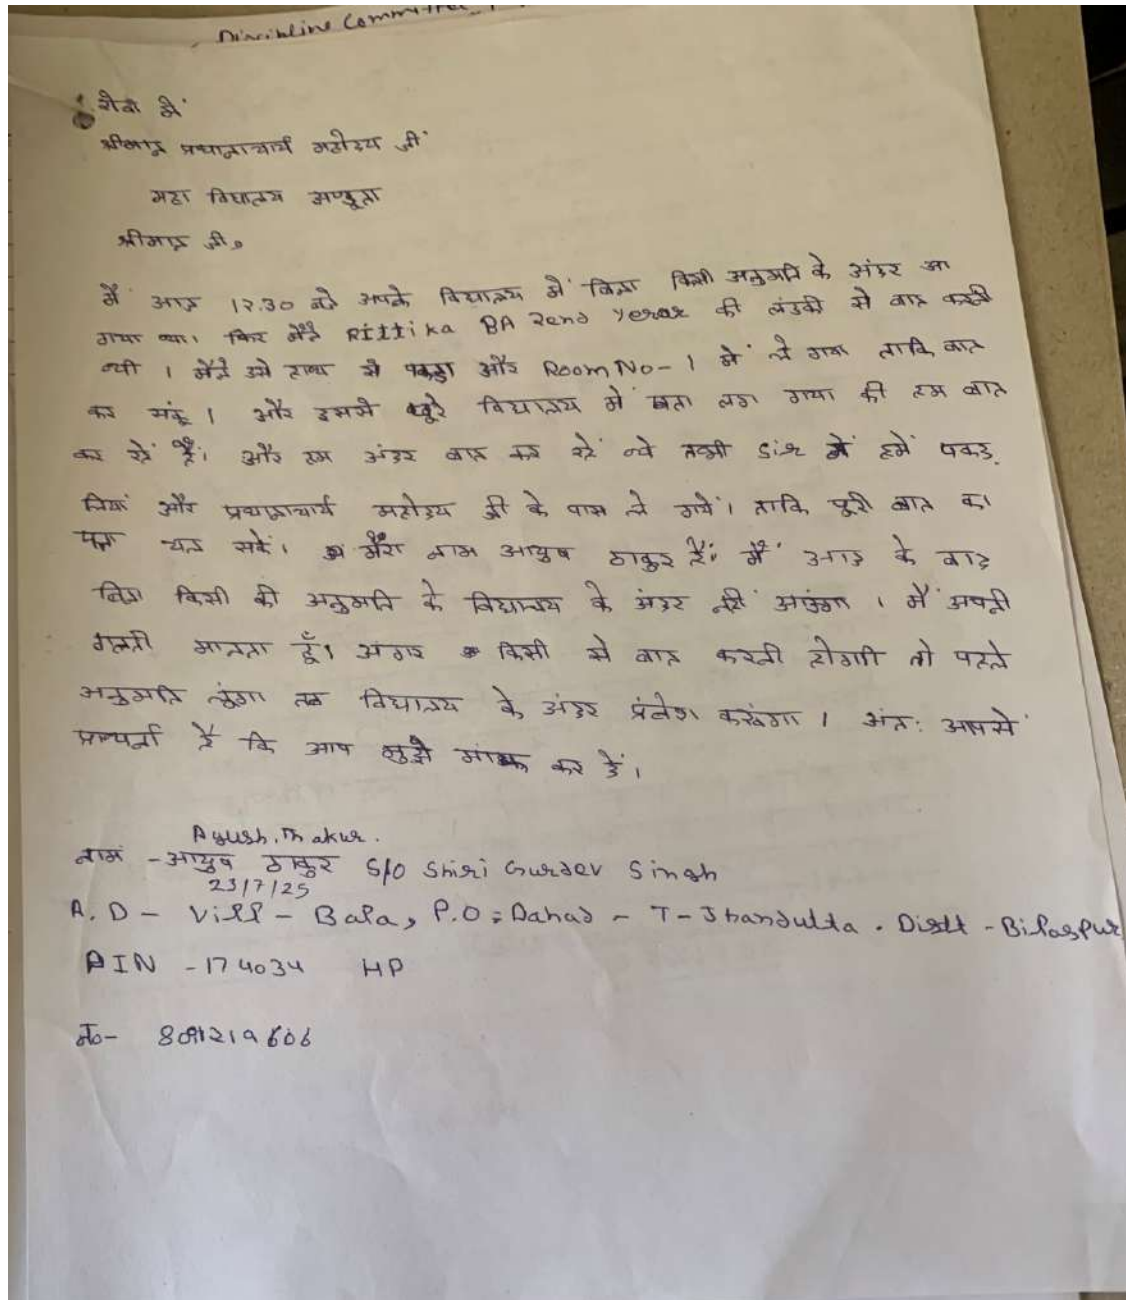 Discipline Committee
सेवा में
श्रीमान् प्रधानाचार्य महोदय जी
महा विद्यालय झण्डूता
श्रीमान जी,
मैं आज 12.30 बजे अपके विद्यालय में बिना किसी अनुमति के अंदर आ
गया था। फिर मैंने Rittika BA 2end yerar की लंडकी से बात करनी
थी । मैंने उसे हाथ से पकड़ा और Room No-1 में ले गया ताकि बात
कर सकूं । और इससे पूरे विद्यालय में पता लग गया की हम बात
कर रहें हैं। और हम अंदर बात कर रहें थे तभी Sir में हमें पकड़
लिया और प्रधानाचार्य महोदय जी के पास ले गयें। ताकि पूरी बात का
पता चल सकें। मेरा नाम आयुष ठाकुर हैं। मैं आज के बाद
बिना किसी की अनुमति के विद्यालय के अंदर नहीं आऊंगा । मैं अपनी
गलती मानता हूँ। अगर किसी से बात करनी होगी तो पहले
अनुमति लूंगा तब विद्यालय के अंदर प्रंवेश करूंगा । अंत: आपसे
प्राथर्ना है कि आप मुझे माफ कर दें।
Ayush Thakur.
नाम - आयुष ठाकुर S/O Shiri Gurdev Singh
23/7/25
A.D - Vill - Bala, P.O; Dahad - T - Jhandutta . Distt - Bilaspur
PIN - 174034 HP
नं०-